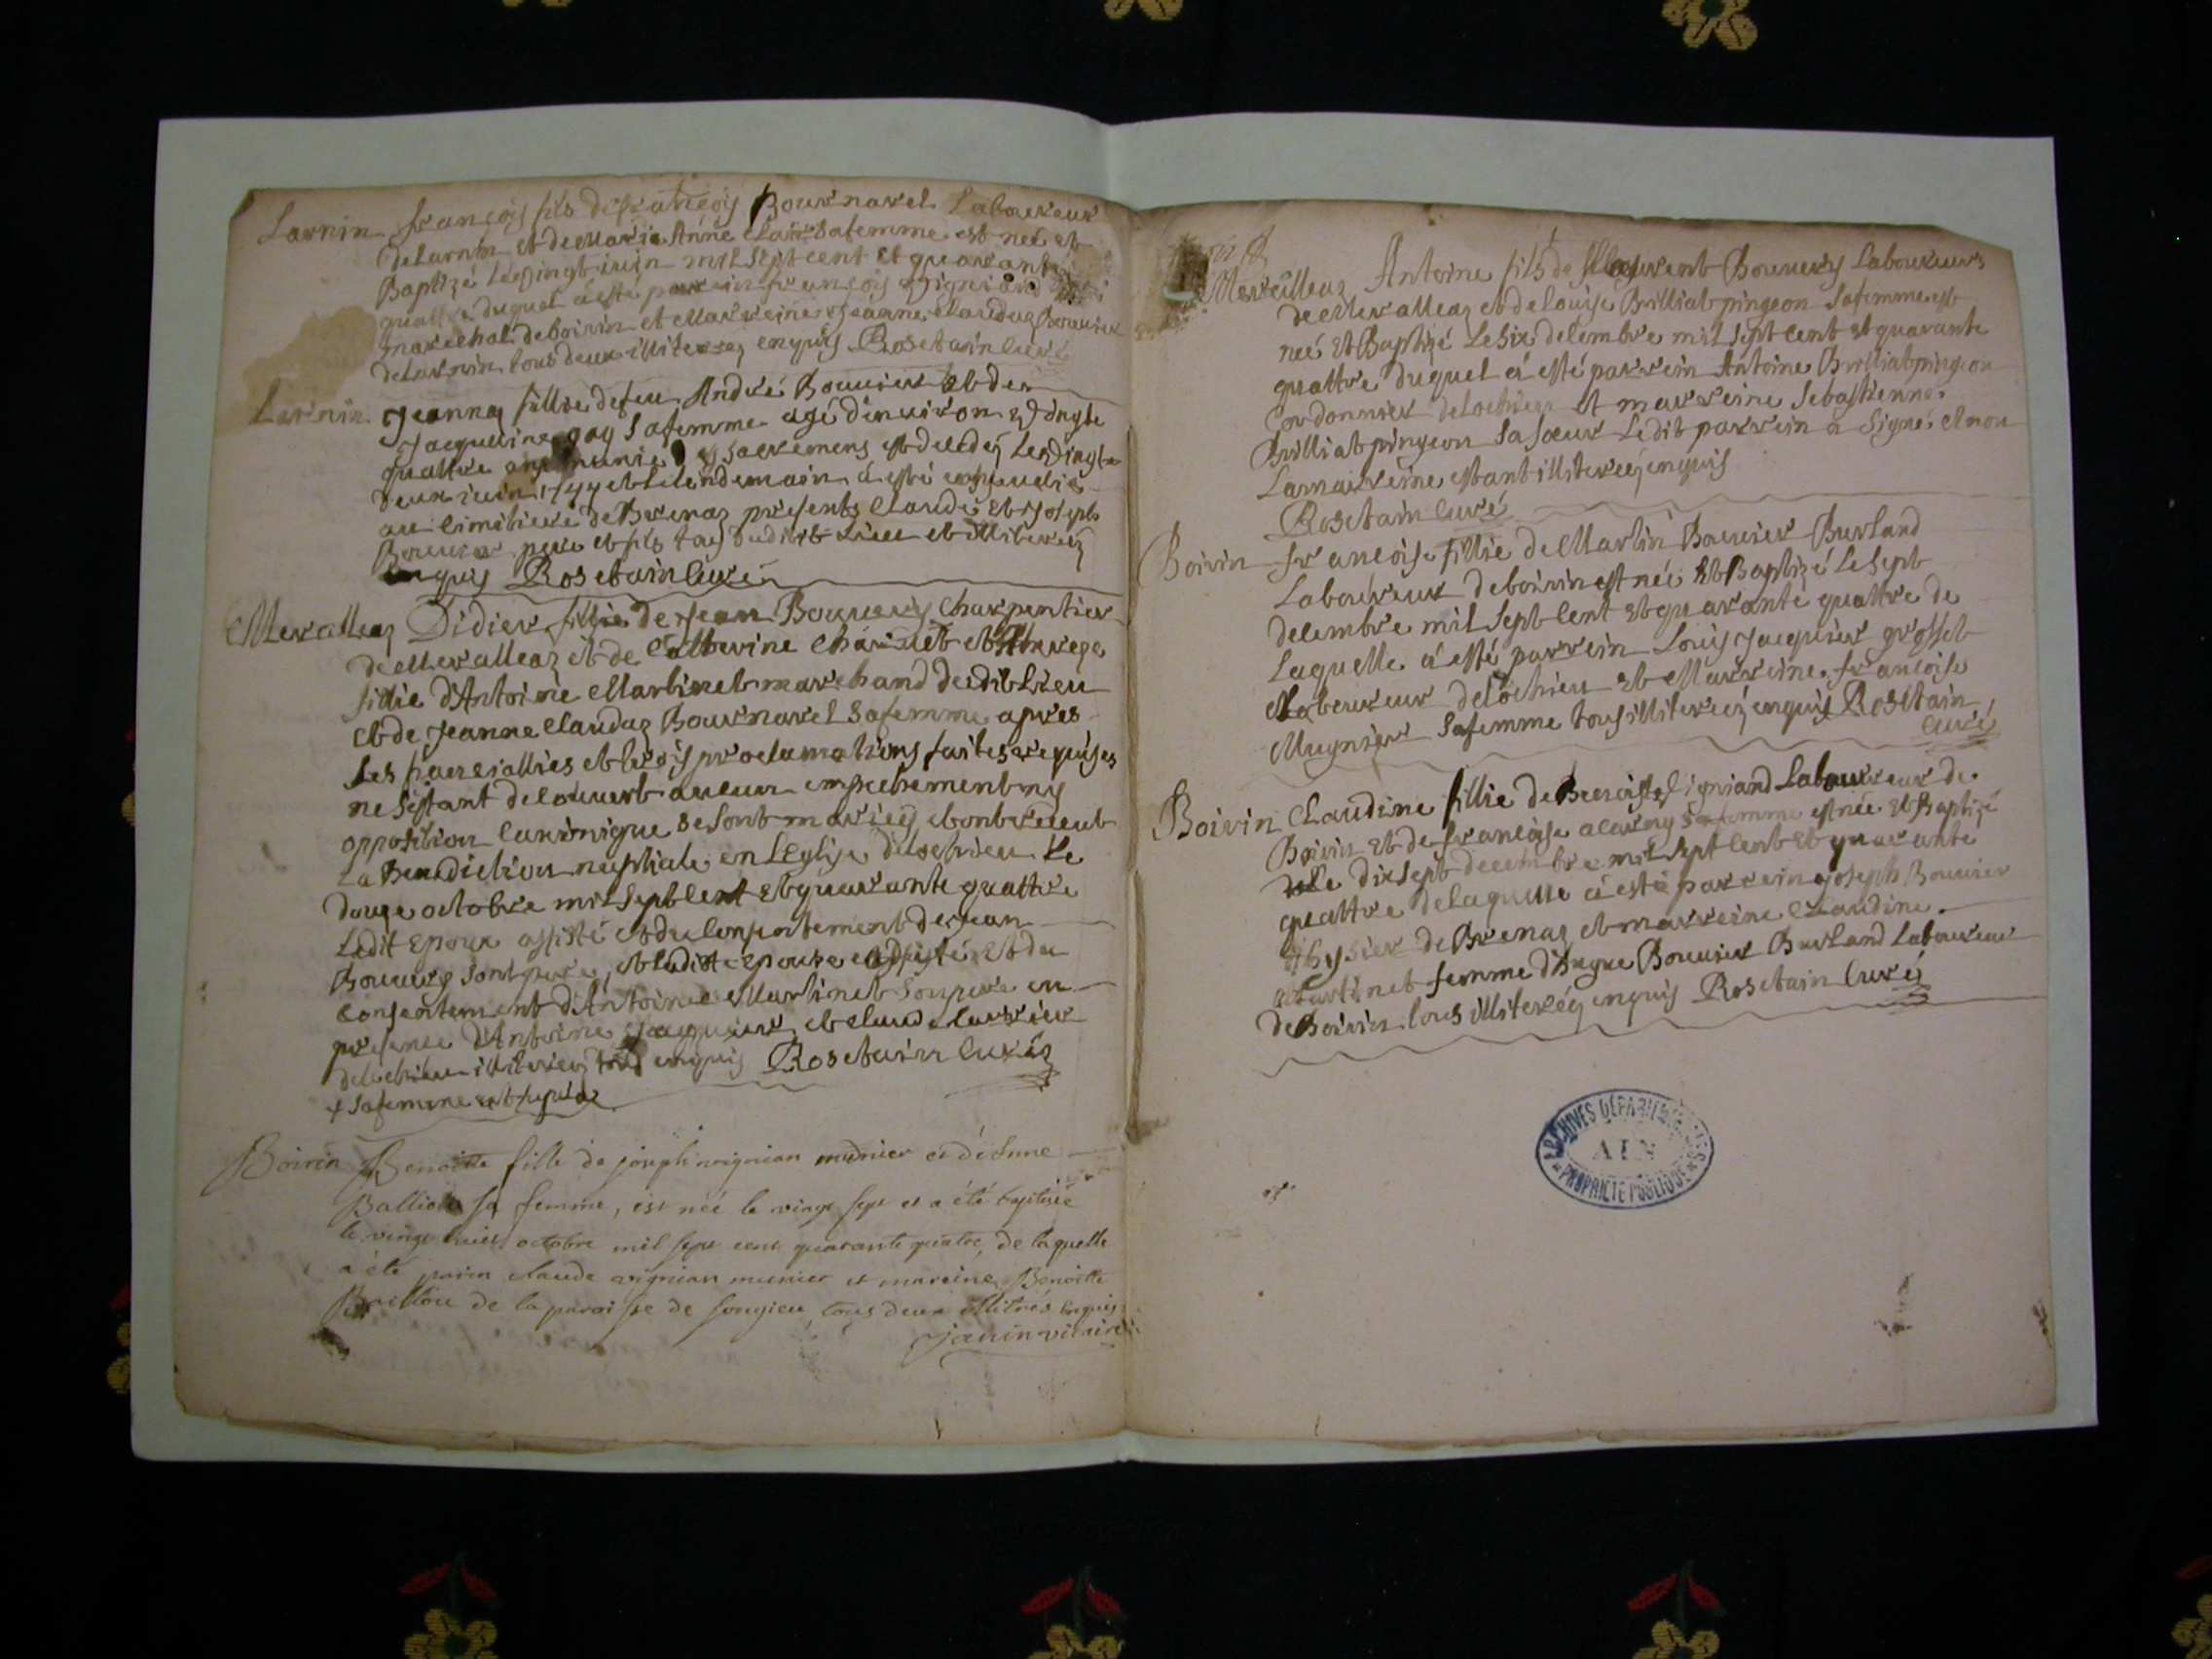 Larnin françois fils de françois Bournarel Laboureur
de Larnin et de Marie Anne Clair sa femme est neé et
Baptizé Le vingt iuin mil sept cent et quarante
quattre duquel á esté parrein françois vigniand
marechal de boirin et Marreine Jeanne Claudaz Bouvier
de Larnin tous deux illiterez enquis Rosetain curé
Larnin. Jeannaz fillie de feu André Bouvier et de
Jacqueline gay sa femme agé d'enuiron vingte
quattre ans munie des sacremens est decedeż Le vingte
deux iuin 1744 et le lendemain á esté enseuelie
au cimitiere de Brenaz presents Claude et Joseph
Bouvier pere et fils tous dudit Lieu et illiterez
enquis Rosetain curé
Meralleaz Didier fillie de Jean Bouuery Charpentier
de Meralleaz et de Catherine Charuet et Thereze
fillie d'Antoine Martinet marchand dudit Lieu
et de Jeanne Claudaz Bournarel sa femme apres
les fiancialles et trois proclamations faites requises
ne s'estant decouuert aucun empechement ny
opposition canonique se sont mariéz et ont receut
La Benediction nuptiale en L'Eglise de Lochieu Le
douze octobre mil sept cent et quarante quattre
Ledit epoux assisté et du consentement de Jean
Bouuery sont pere, et ladite epouse assisté et du
consentement d'Antoine Martinet son pere en
presence d'Antoine Jacquier et Claude Carrier
de Lochieu illiterez tous enquis Rosetain curéz
+ sa femme
Boirin Benoitte fille de joseph vignian munier et d'etienne
Balliod sa femme, est neé le vingt sept et a été baptisée
le vingt huit octobre mil sept cent quarante quatre, de laquelle
a été parin claude vignian munier et mareine Benoitte
de la paroisse de songieu, tous deux illitrés enquis
Janin vicaire
Merálleaz Antoine fils de Laurent Bouuery Laboureur
de Meralleaz et de Louise Brilliat pingeon sa femme est
neé et Baptizé Le six decembre mil sept cent et quarante
quattre duquel á esté parrein Antoine Brilliat pingeon
Cordonnier de Lochieu et marreine Sebastienne
Brilliat pingeon sa sœur Ledit parrein a signé et non
La marreine estant illitereé enquis
Rosetain curé
Boirin françoise fillie de Martin Bouvier Burland
Laboureur de boirin est neé et Baptizé Le sept
decembre mil sept cent et quarante quattre de
Laquelle á esté parrein Louis Jacquier grosset
Laboureur de Lochieu et Marreine françoise
Mugnier sa femme tous illitereź enquis Rosetain
curé
Boirin Claudine fillie de Benoist vigniand Laboureur de
Boirin et de françoise acarny sa femme est née et Baptizé
le dix sept decembre mil sept cent et quarante
quattre de laquelle á esté parrein Joseph Bouvier
thysier de Brenaz et marreine Claudine
Martinet femme d'Hugue Bouvier Burland Laboureur
de Boirin tous illitereź enquis Rosetain curé
ARCHIVES DÉPARTEMENTALES
AIN
PROPRIÉTÉ PUBLIQUE